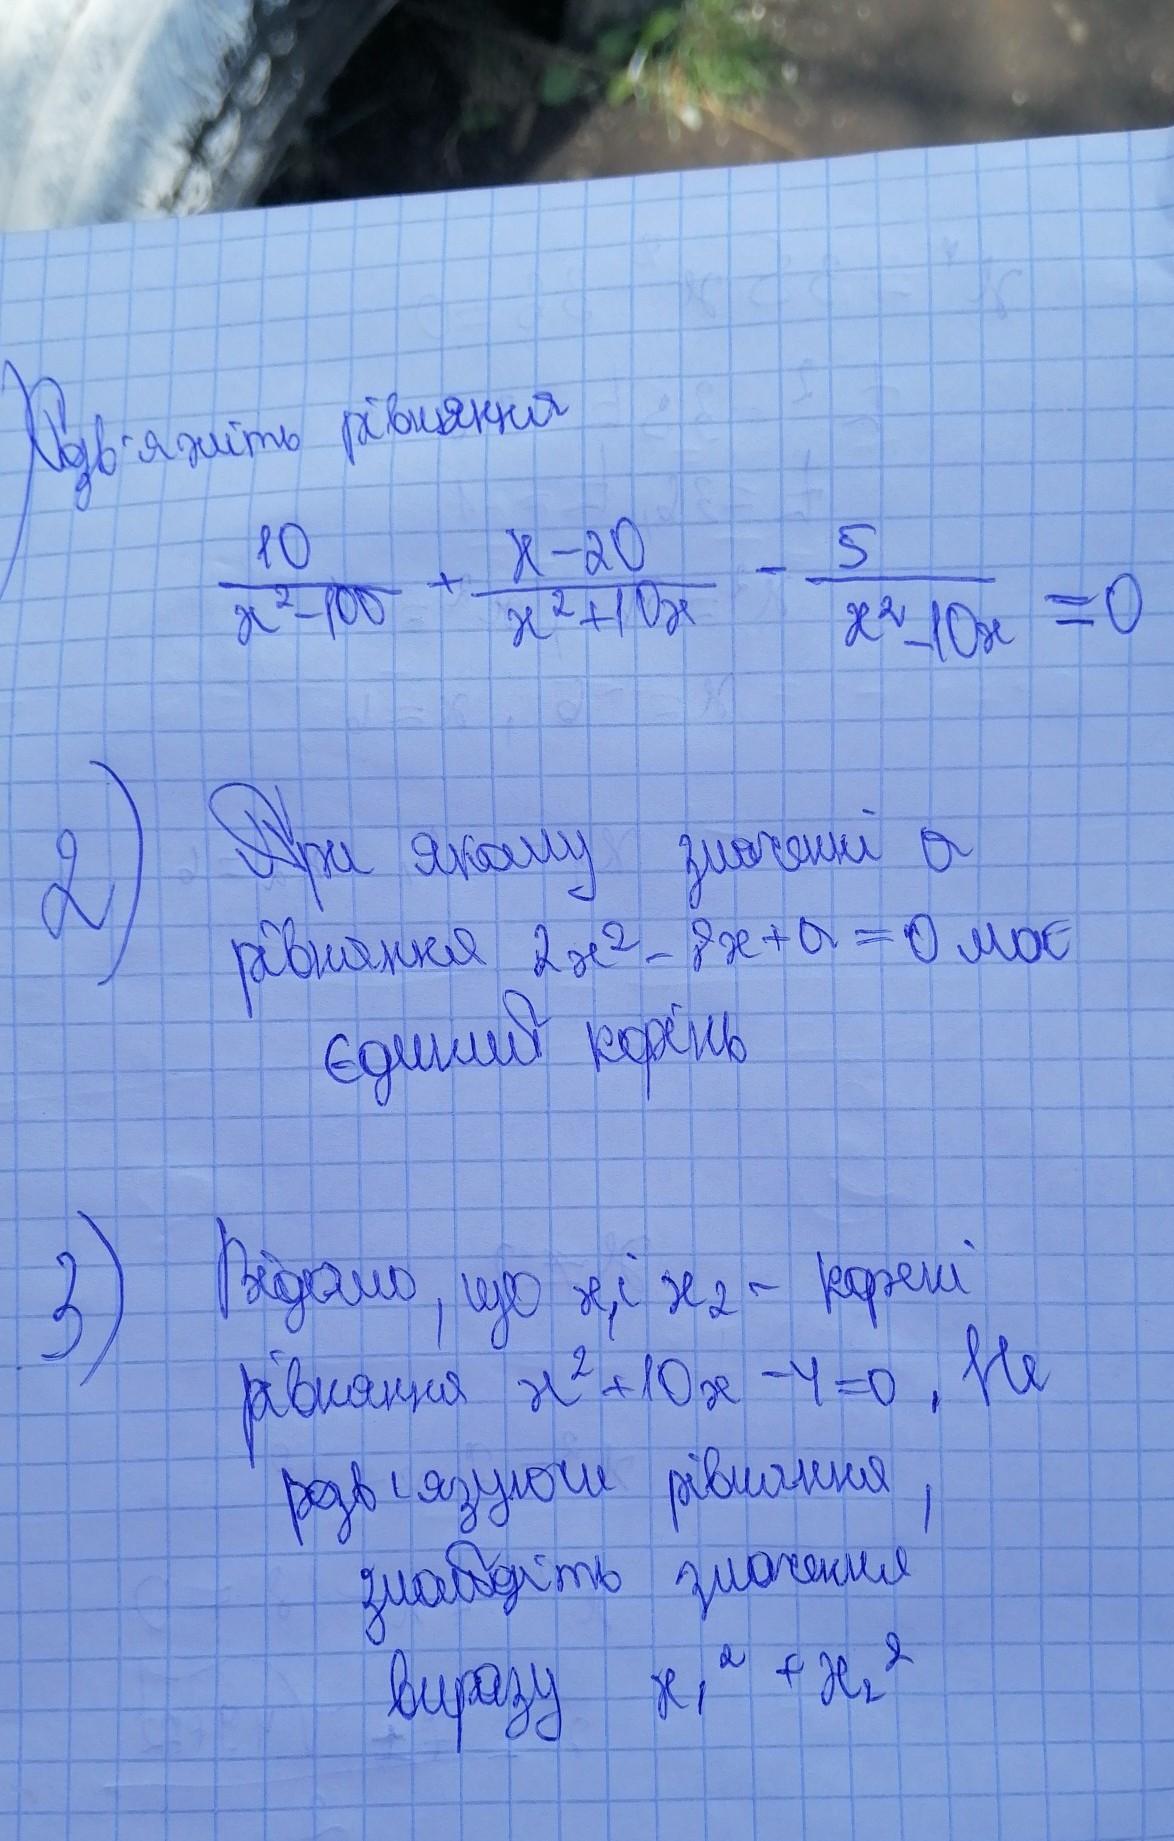 ) Розв'яжіть рівняння
10/(x²-100) + (x-20)/(x²+10x) - 5/(x²-10x) = 0
2) При якому значенні a
рівняння 2x² - 8x + a = 0 має
єдиний корінь
3) Відомо, що x₁ і x₂ - корені
рівняння x² + 10x - 4 = 0. Не
розв'язуючи рівняння,
знайдіть значення
виразу x₁² + x₂²